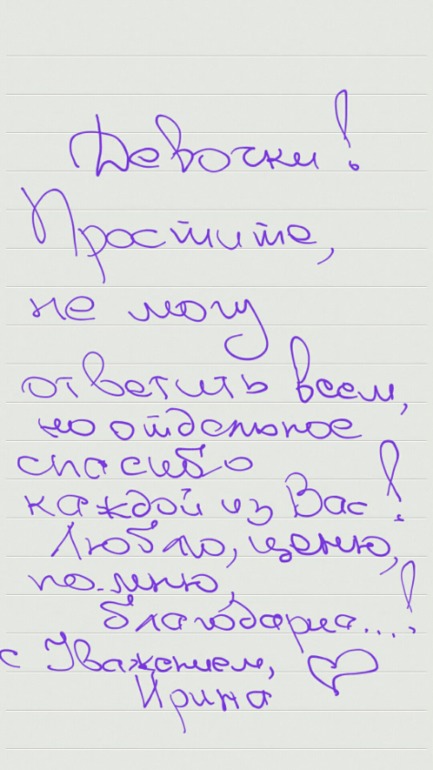 Девочки!
Простите,
не могу
ответить всем,
но отдельное
спасибо
каждой из Вас!
Люблю, ценю,
помню,
благодарна...!
с Уважением,
Ирина